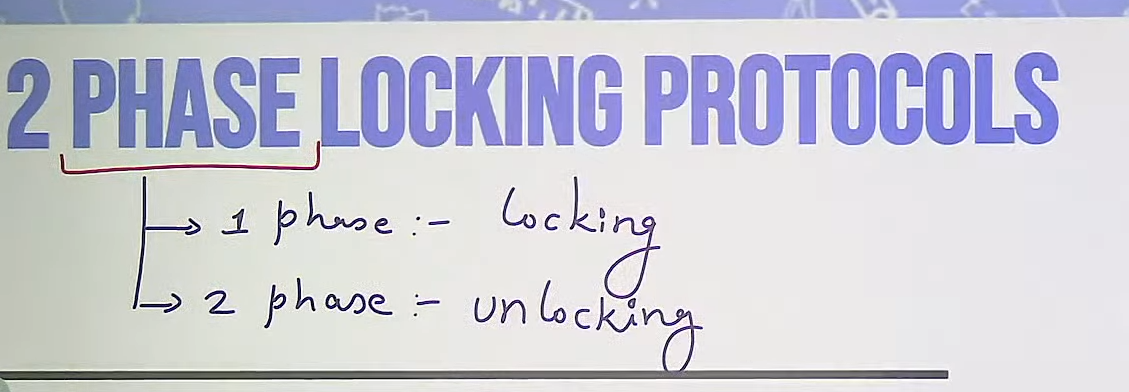 2 PHASE LOCKING PROTOCOLS
→ 1 phase :- locking
→ 2 phase :- unlocking